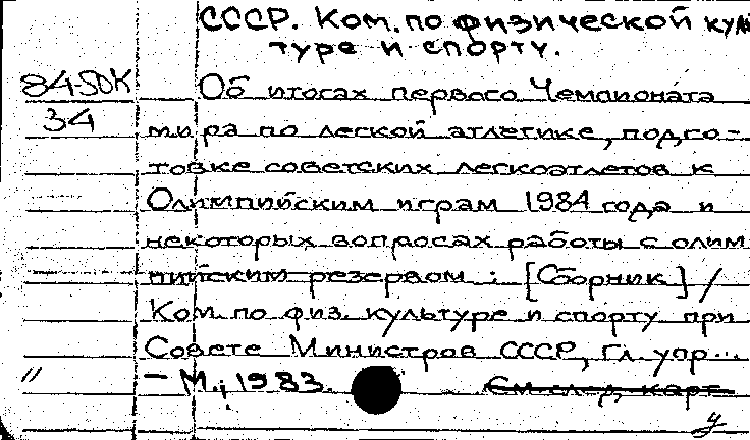 СССР. Ком. по физической куль
туре и спорту.
84-5ОК
34
Об итогах первого Чемпионата
мира по легкой атлетике, подго-
товке советских легкоатлетов к
Олимпийским играм 1984 года и
некоторых вопросах работы с олим
пийским резервом : [Сборник] /
Ком. по физ. культуре и спорту при
Совете Министров СССР, Гл. упр...
— М., 1983.
См след. карт.